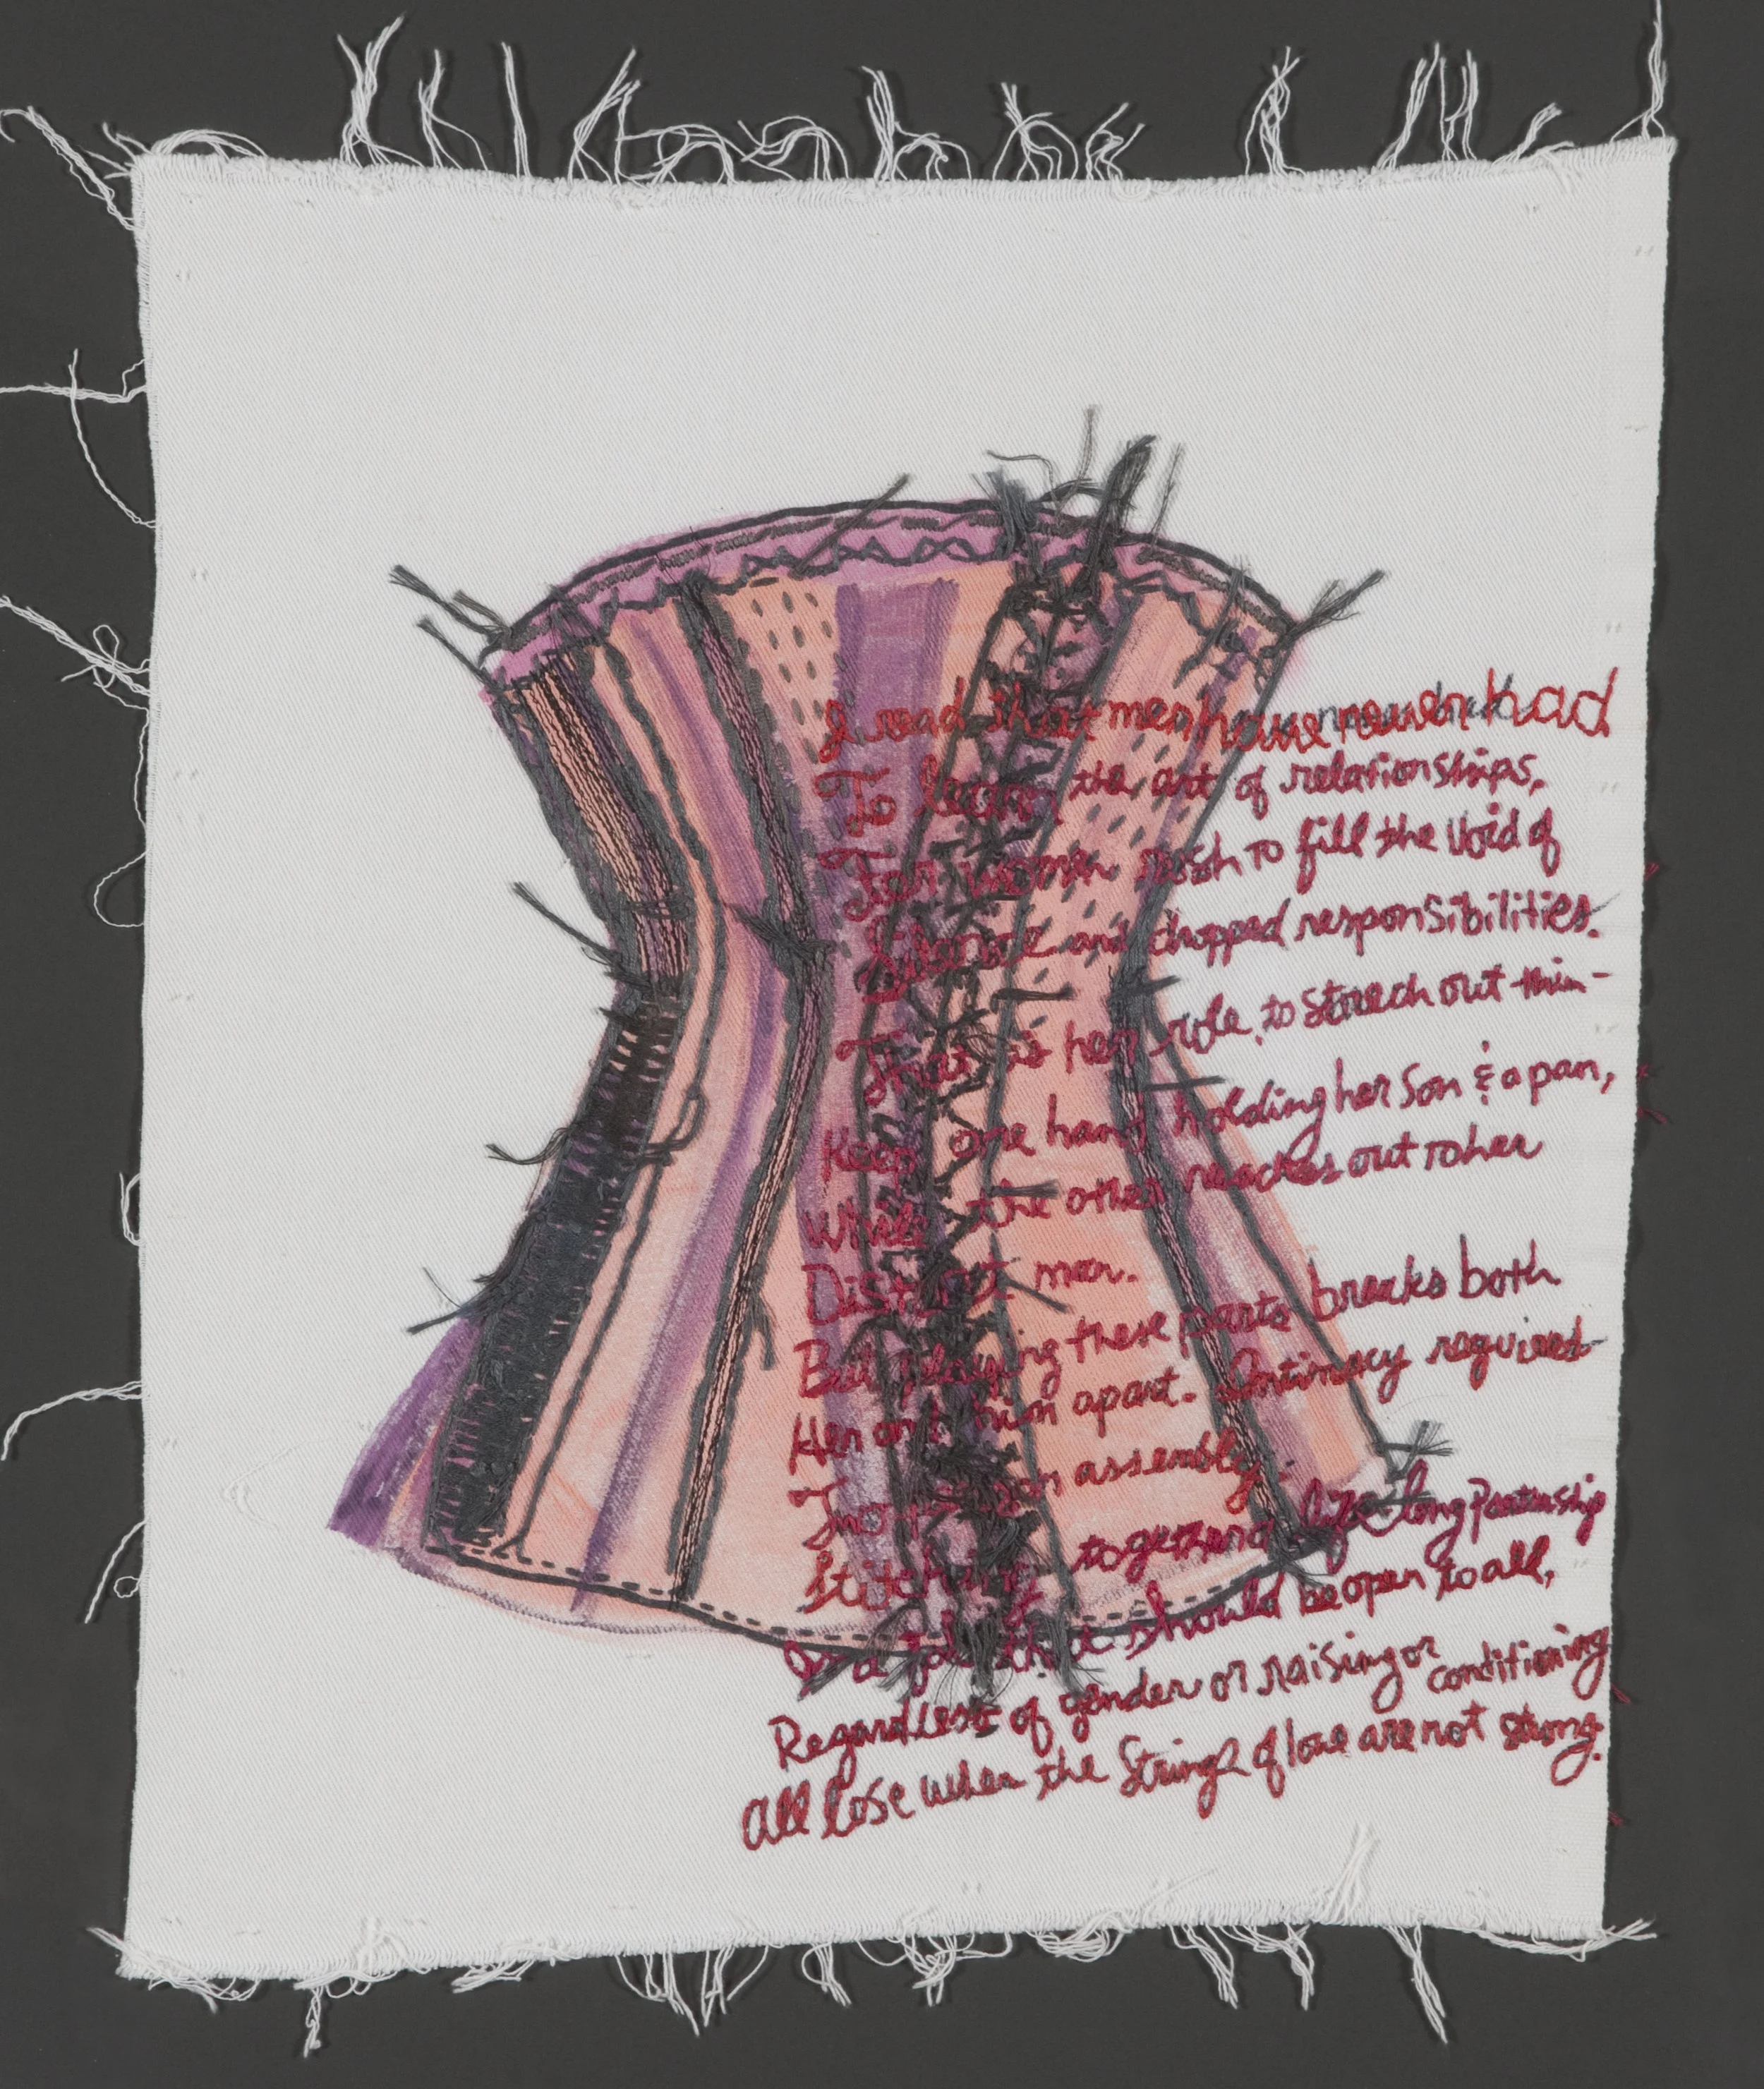 I read that men have never had
To learn the art of relationships,
For women rush to fill the void of
Silence and dropped responsibilities.
That is her role, to stretch out thin-
Keep one hand holding her son & a pan,
While the other reaches out to her
Distant man.
But playing these parts breaks both
Her and him apart. Intimacy requires
Two person assembly.
Stitching together a life-long partnership
Is a job that should be open to all,
Regardless of gender or raising or conditioning
All lose when the strings of love are not strong.